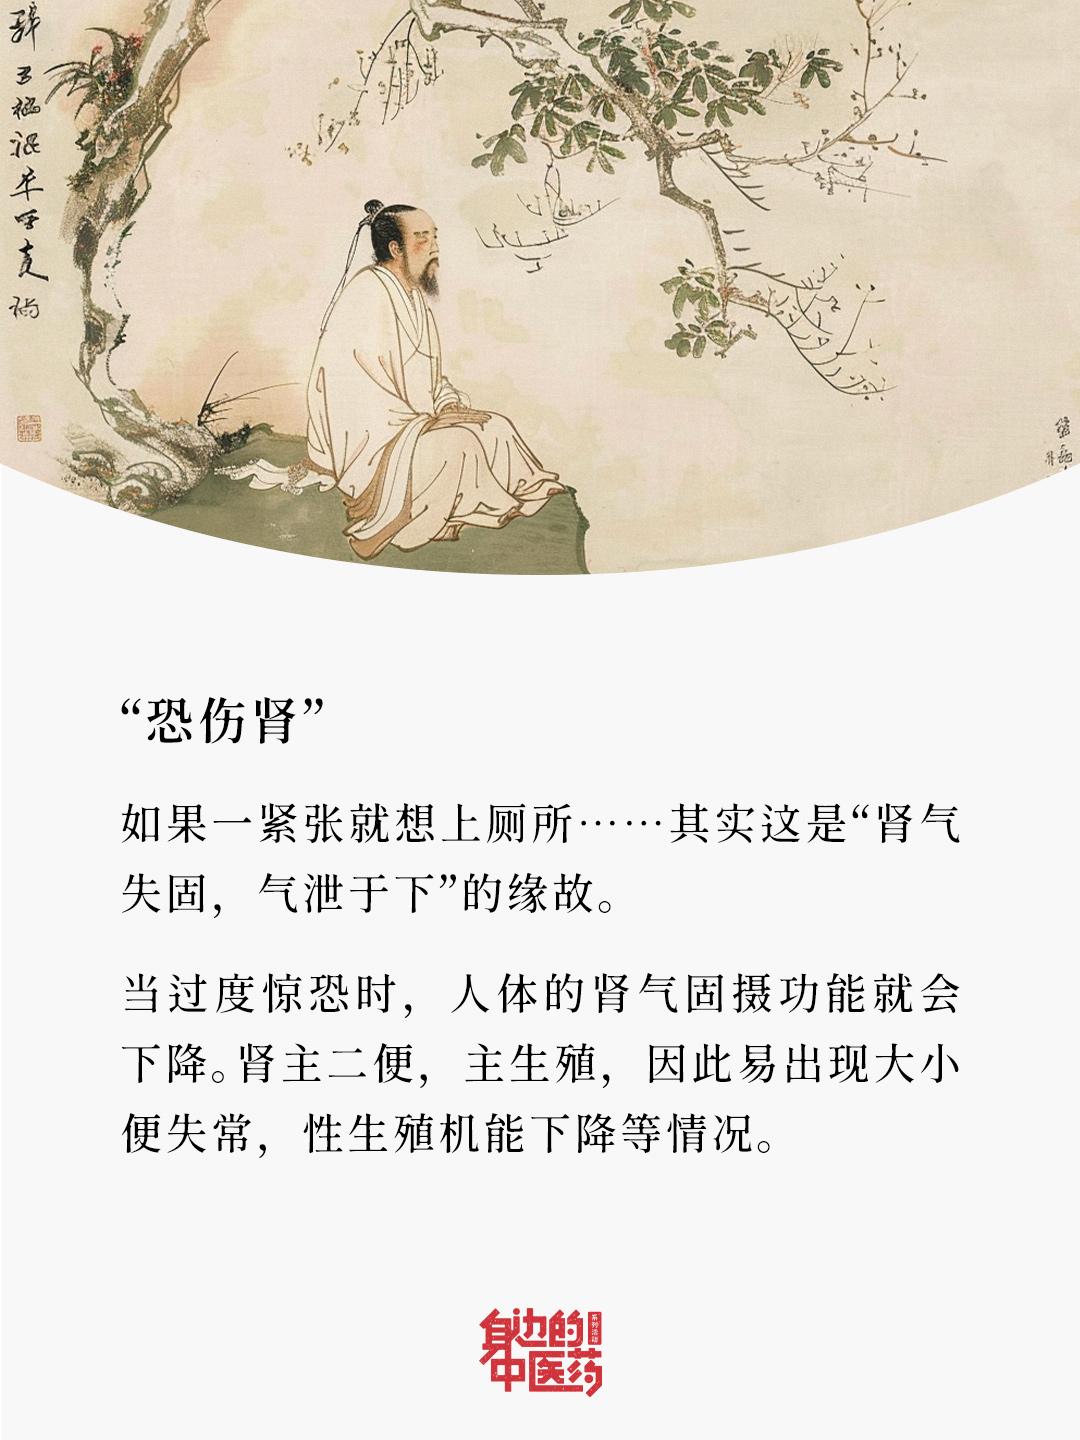 “恐伤肾”
如果一紧张就想上厕所……其实这是“肾气
失固，气泄于下”的缘故。
当过度惊恐时，人体的肾气固摄功能就会
下降。肾主二便，主生殖，因此易出现大小
便失常，性生殖机能下降等情况。
身边的
系列活动
中医药